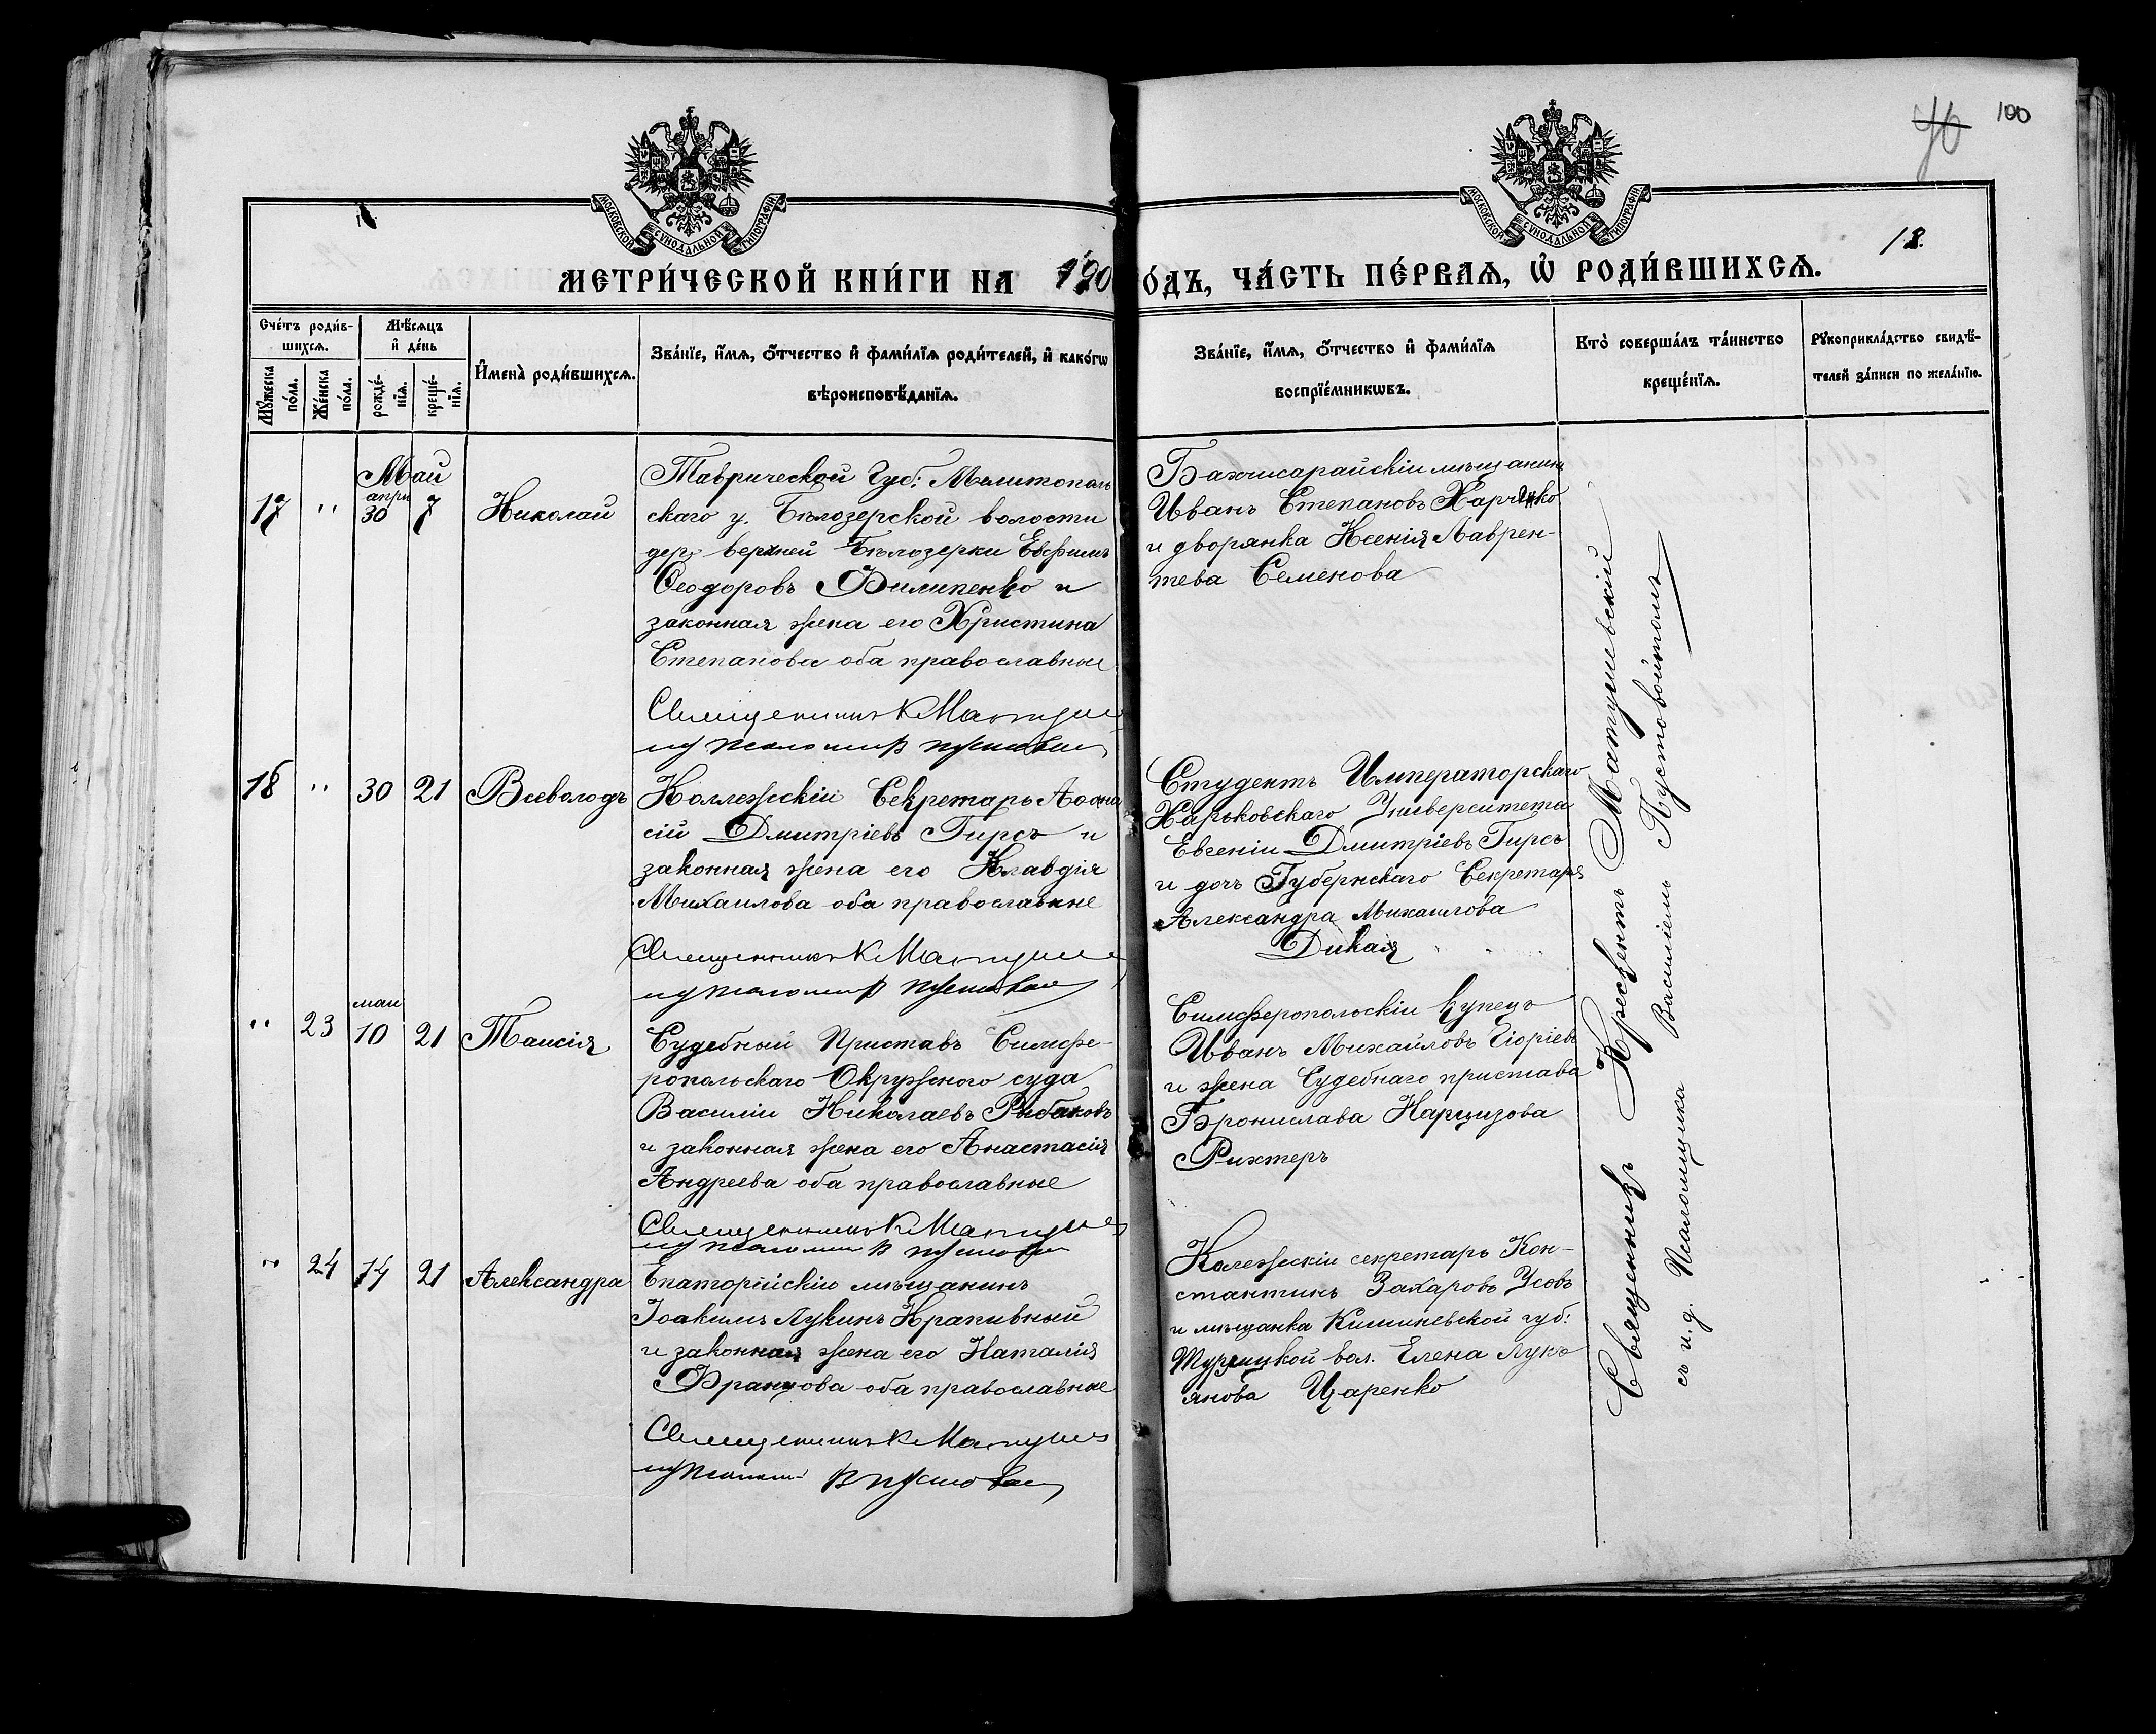 90
100
МОСКОВСКОЙ СѴНОДАЛЬНОЙ ТИПОГРАФІИ
МОСКОВСКОЙ СѴНОДАЛЬНОЙ ТИПОГРАФІИ
18.
МЕТРИ́ЧЕСКОЙ КНИ́ГИ НА 190
О́ДЪ, ЧА́СТЬ ПЕ́РВАѦ, Ѡ҆ РОДИ́ВШИХСѦ.
Сче́тъ роди́в-
шихсѧ.
Мꙋ́жеска
по́ла.
Же́нска
по́ла.
Мѣ́сѧцъ
и҆ де́нь
рожде́-
нїѧ.
креще́-
нїѧ.
И҆мена̀ роди́вшихсѧ.
Зва́нїе, и҆́мѧ, ѻ҆́тчество и҆ фами́лїѧ роди́телей, и҆ како́гѡ
вѣроисповѣ́данїѧ.
Зва́нїе, и҆́мѧ, ѻ҆́тчество и҆ фами́лїѧ
воспрїе́мникѡвъ.
Кто̀ соверша́лъ та́инство
креще́нїѧ.
Рꙋкоприкла́дство свидѣ́-
телей за́писи по жела́нїю.
Май
апри
17 " 30 7 Николай
Таврической Губ: Мелитополь
скаго у. Бѣлозерской волости
дер. верхней Бѣлозерки Евфимъ
Ѳеодоровъ Филипенко и
законная жена его Христина
Степанова оба православные
Священникъ К Матуше
Бахчисарайскій мѣщанинъ
Иванъ Степановъ Харченко
и дворянка Ксенія Лаврен-
тева Семенова
18 " 30 21 Всеволодъ
Коллежскій Секретарь Аѳана
сій Дмитріевъ Гирсъ и
законная жена его Клавдія
Михаилова оба православные
Священникъ К Матуше
Студентъ Императорскаго
Харьковскаго Университета
Евгеній Дмитріевъ Гирсъ
и дочь Губернскаго Секретаря
Александра Михаилова
Дикая
маи
" 23 10 21 Таисія
Судебный Приставъ Симфе-
ропольскаго Окружного суда
Василій Николаевъ Рыбаковъ
и законная жена его Анастасія
Андреева оба православные
Священникъ К Матуше
Симферопольскій купецъ
Иванъ Михайловъ Гіоргіевъ
и жена Судебнаго пристава
Бронислава Нарцизова
Рихтеръ
" 24 14 21 Александра
Евпаторійскій мѣщанинъ
Іоакимъ Лукинъ Крапивный
и законная жена его Наталія
Францова оба православные
Священникъ К Матуше
Колежскій секретарь Кон-
стантинъ Захаровъ Усовъ
и мѣщанка Кишиневской губ:
вол. Елена Лукь
янова Царенко
Священникъ Крескентъ Матушевскій
съ и.д. Псаломщика Василіемъ Пустовойтомъ